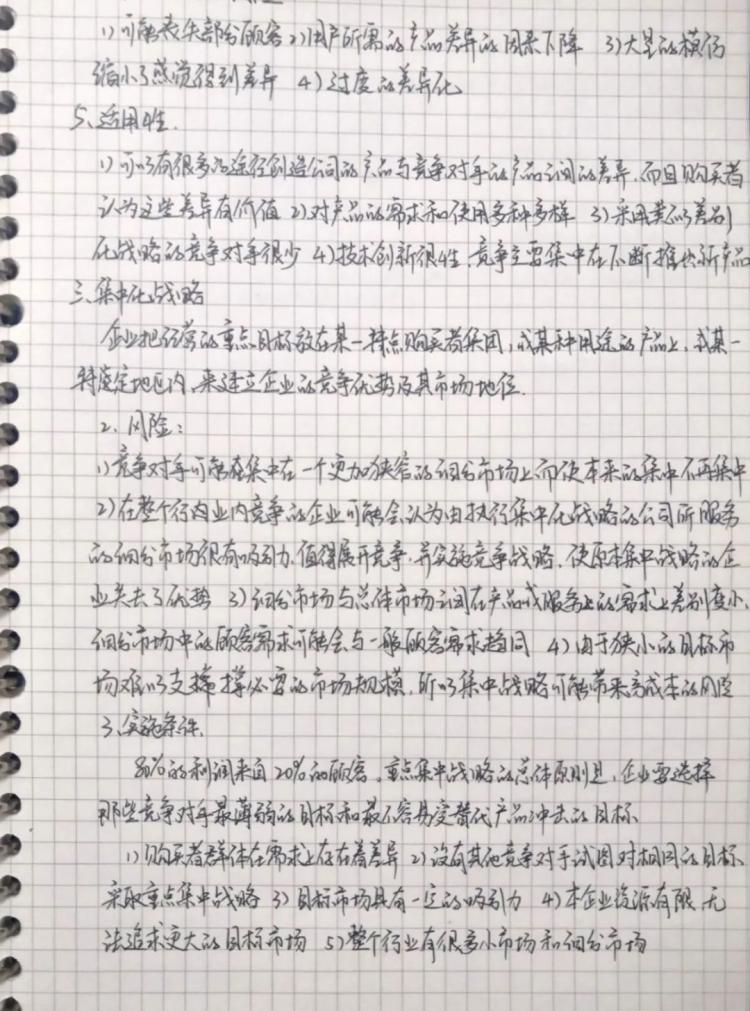 1)可能丧失部分顾客 2)用户所需的产品差异的因素下降 3)大量的模仿
缩小了感觉得到差异 4)过度的差异化
5、适用性.
1)可以有很多的途径创造公司的产品与竞争对手的产品之间的差异,而且购买者
认为这些差异有价值 2)对产品的需求和使用多种多样 3)采用类似差别
化战略的竞争对手很少 4)技术创新很快,竞争主要集中在不断推出新产品
三、集中化战略
企业把经营的重点目标放在某一特点购买者集团,或某种用途的产品上,或某一
特定地区内,来建立企业的竞争优势及其市场地位.
2、风险:
1)竞争对手可能在集中在一个更加狭窄的细分市场上而使本来的集中不再集中
2)在整个行业内竞争的企业可能会认为由执行集中化战略的公司所服务
的细分市场很有吸引力,值得展开竞争,并实施竞争战略,使原本集中战略的企
业失去了优势 3)细分市场与总体市场之间在产品或服务上的需求上差别变小,
细分市场中的顾客需求可能会与一般顾客需求趋同 4)由于狭小的目标市
场难以支撑必要的市场规模,所以集中战略可能带来高成本的风险
3、实施条件.
80%的利润来自20%的顾客,重点集中战略的总体原则是,企业要选择
那些竞争对手最薄弱的目标和最不容易受替代产品冲击的目标.
1)购买者群体在需求上存在着差异 2)没有其他竞争对手试图对相同的目标
采取重点集中战略 3)目标市场具有一定的吸引力 4)本企业资源有限,无
法追求更大的目标市场 5)整个行业有很多小市场和细分市场